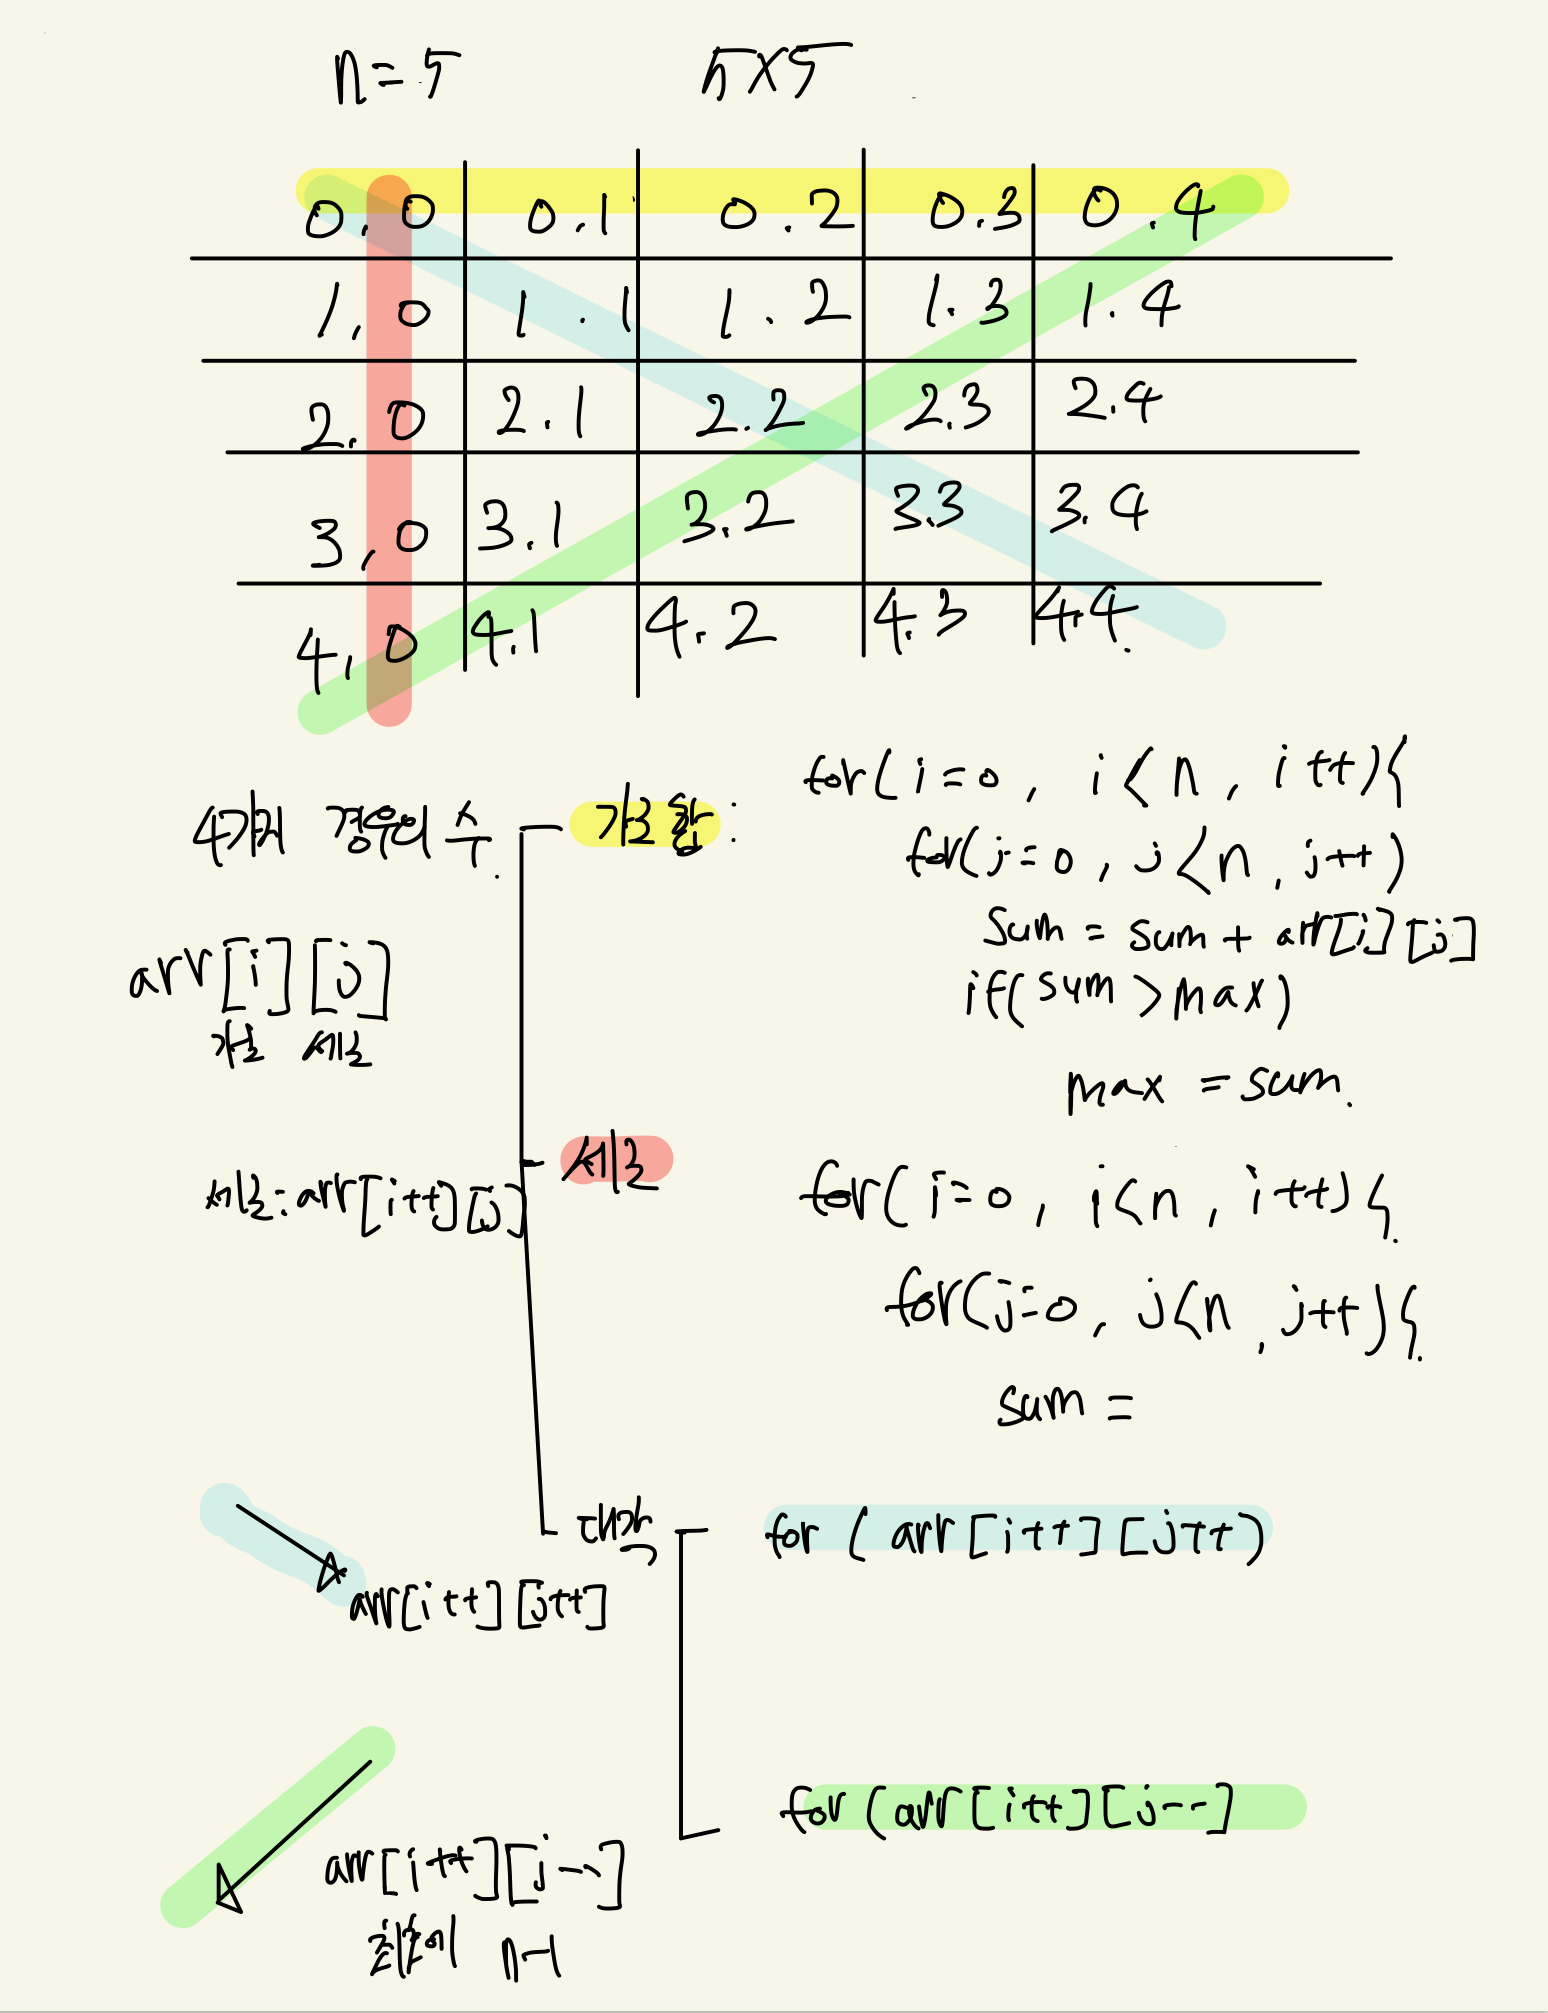 n = 5 5X5
0,0 0.1 0.2 0.3 0.4
1,0 1.1 1.2 1.3 1.4
2.0 2.1 2.2 2.3 2.4
3,0 3.1 3.2 3.3 3.4
4,0 4.1 4.2 4.3 4.4.
4가지 경우의 수.
가로 합 :
for( i=0 , i<n , i++){
for(j=0 , j<n , j++)
sum = sum + arr[i][j]
if( sum > max)
max = sum.
arr[i][j]
가로 세로
세로
세로: arr[i++][j]
for( i=0 , i<n , i++) {
for(j=0 , j<n , j++){
sum =
대각
for ( arr[i++][j++)
arr[i++][j++]
for (arr[i++][j--]
arr[i++][j--]
n-1